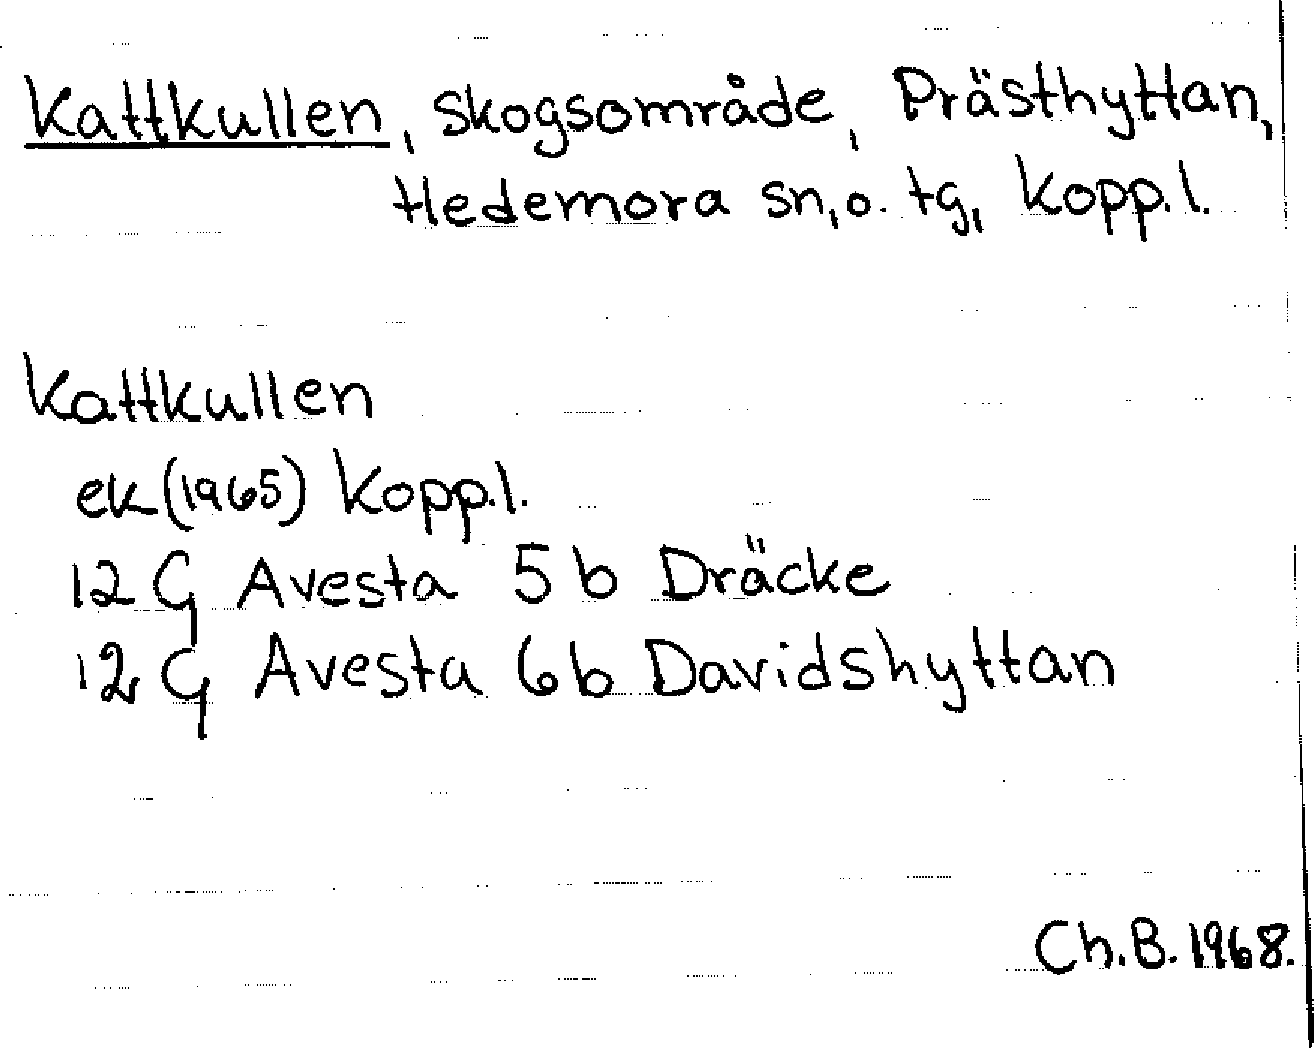 Kattkullen, skogsområde, Prästhyttan,
Hedemora sn, o. tg, Kopp. l.
Kattkullen
ek (1965) Kopp. l.
12 G Avesta 5 b Dräcke
12 G Avesta 6 b Davidshyttan
Ch. B. 1968.